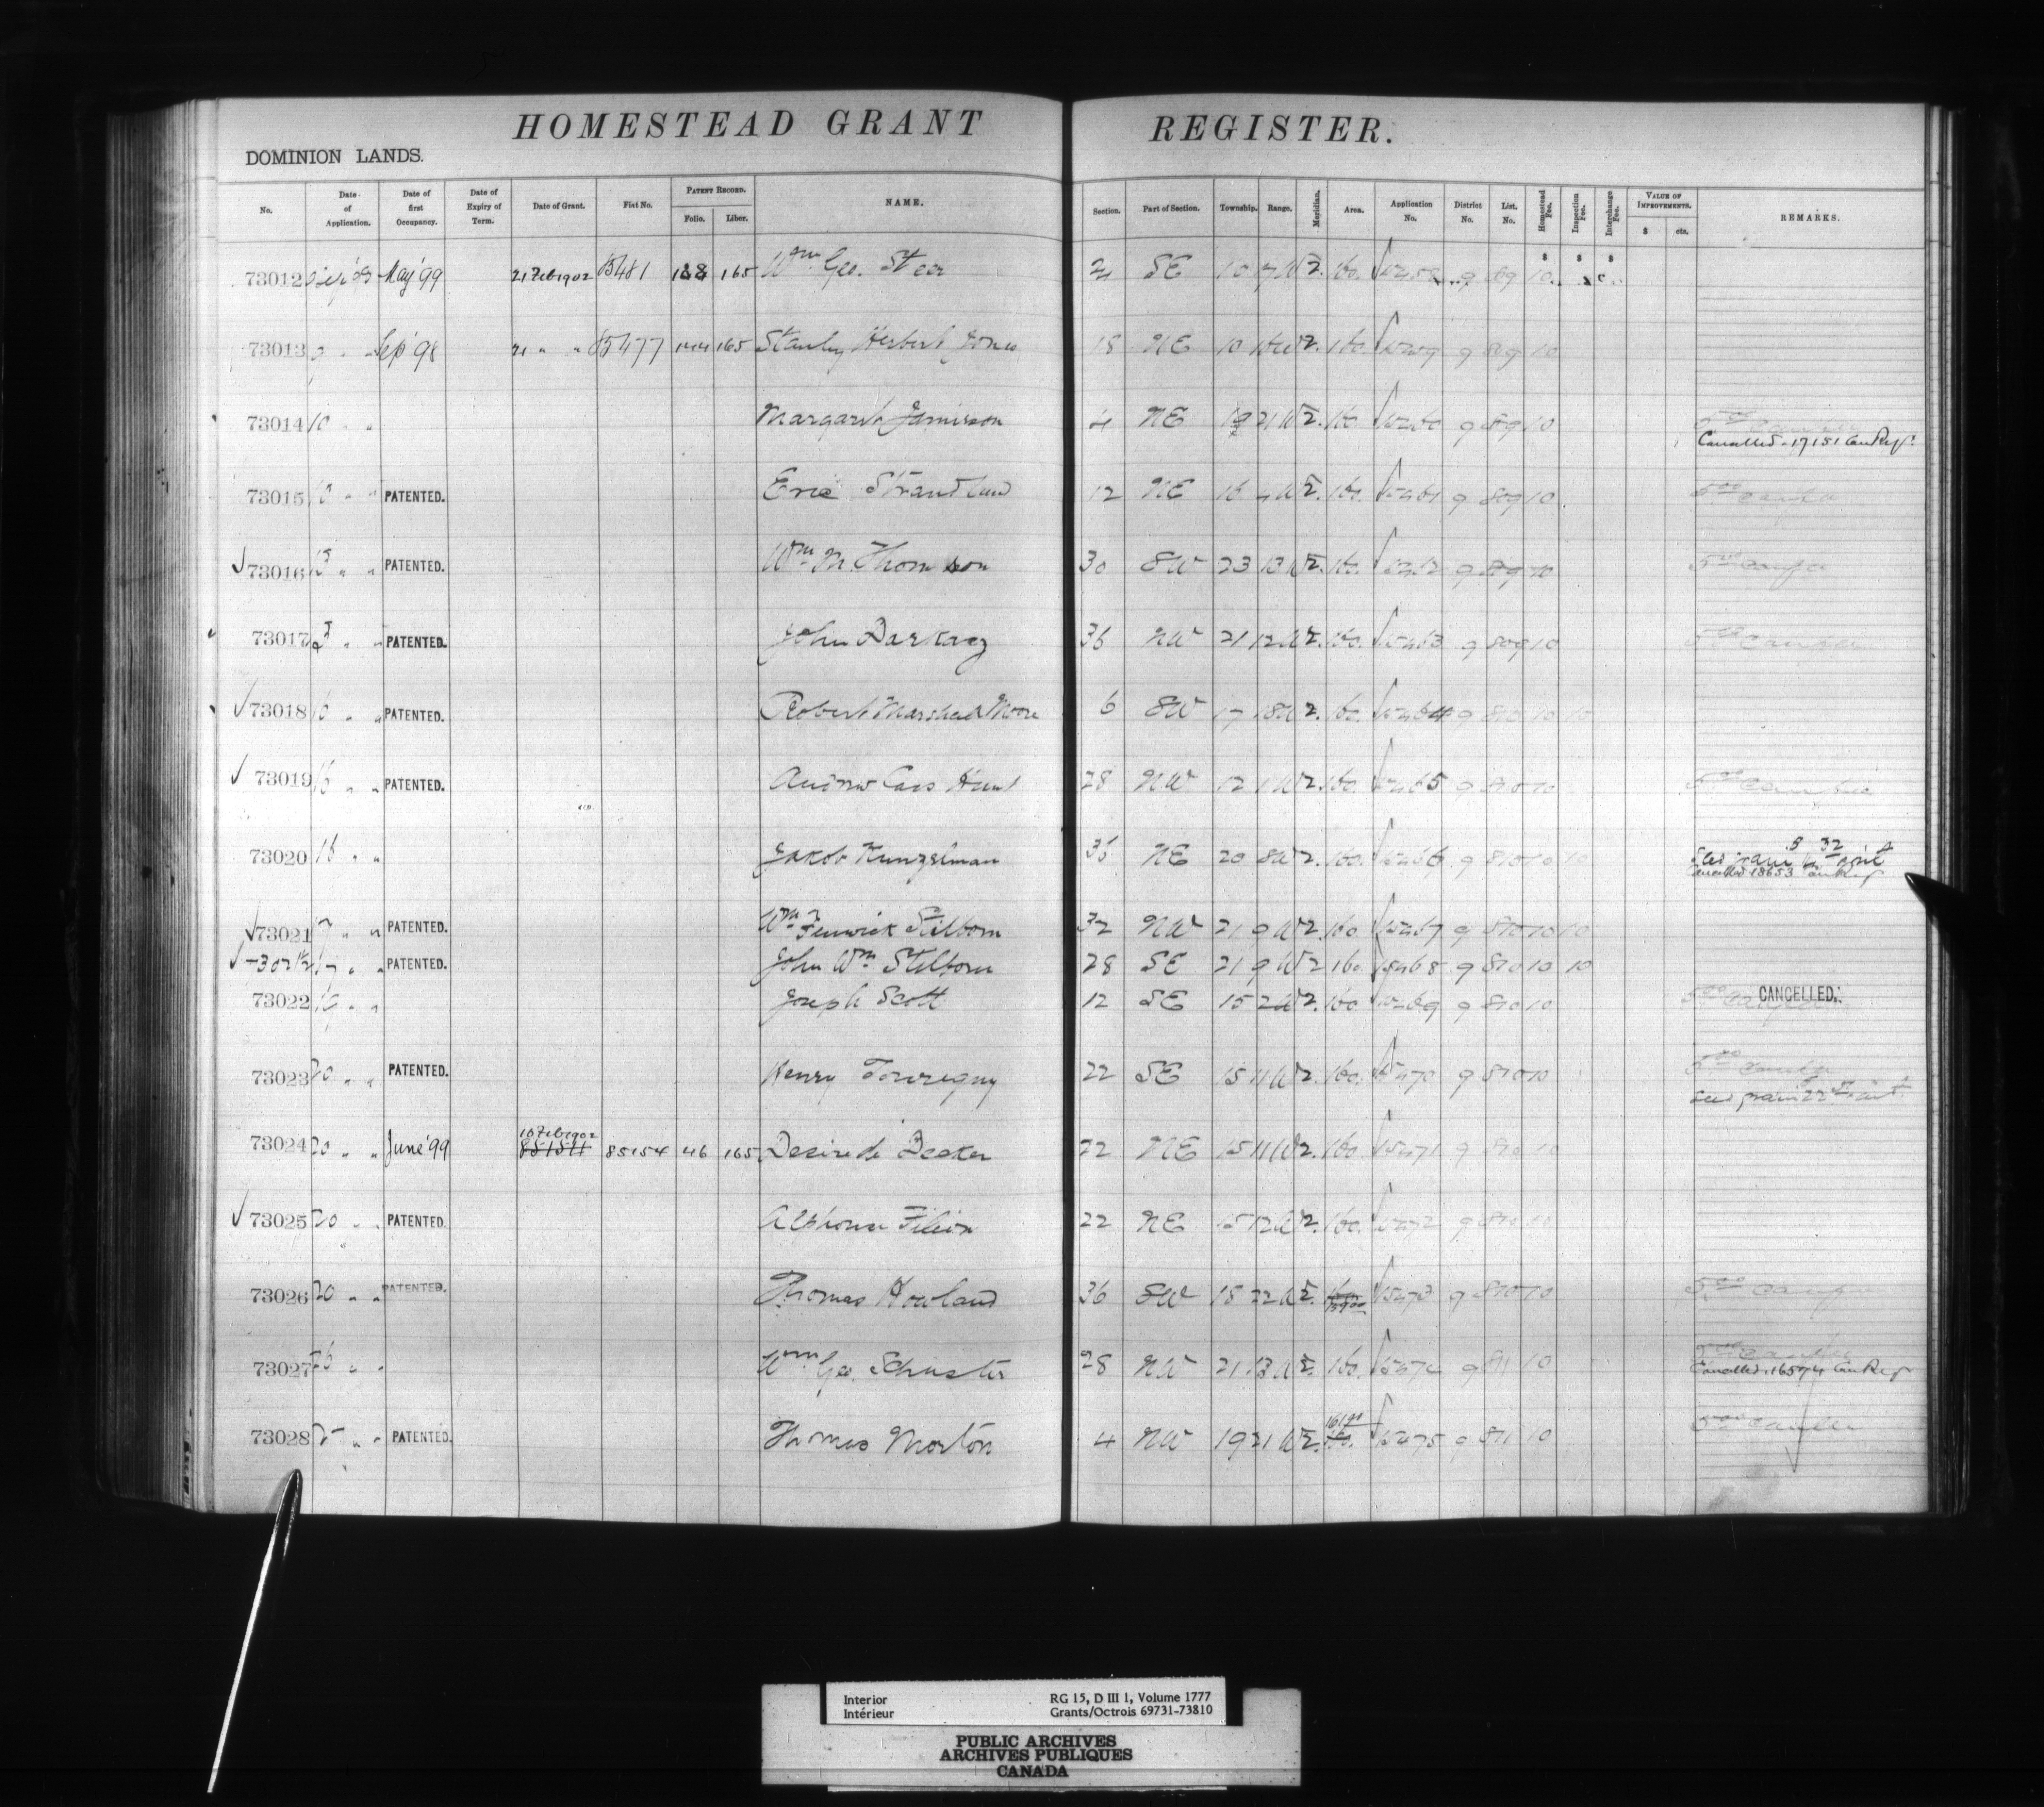 HOMESTEAD GRANT REGISTER.
DOMINION LANDS.
No. Date of Application. Date of first Occupancy. Date of Expiry of Term. Date of Grant. Fiat No. PATENT RECORD. Folio. Liber. NAME. Section. Part of Section. Township. Range. Meridian. Area. Application No. District No. List. No. Homestead Fee. Inspection Fee. Interchange Fee. VALUE OF IMPROVEMENTS. $ cts. REMARKS.
73012 May '99 21 Feb 1902 85481 165 Wm Geo. Steer SE 10 7 W 2. 160. 9 809 10
73013 Sep '98 21 " " 85477 165 Stanley Herbert Jones 18 NE 10 W 2. 160. 9 809 10
73014 10 " " Margaret Jamieson 4 NE 19 21 W 2. 160. 9 809 10 Cancelled 17151 Can Reg
73015 10 " " PATENTED. Eric Strandlund 12 NE 16 4 W 2. 160. 9 809 10
73016 13 " " PATENTED. Wm M. Thomson 30 SW 23 13 W 2. 160. 9 809 10
73017 " " PATENTED. John 36 NW 21 12 W 2. 160. 15463 9 809 10
73018 " " PATENTED. Robert Marshall Moore 6 SW 17 18 W 2. 160. 15464 9 810 10 10
73019 16 " " PATENTED. Andrew Hunt 28 NW 12 1 W 2. 160. 15465 9 810 10
73020 16 " " Jakob Kunzelman 36 NE 20 8 W 2. 160. 15466 9 810 10 10 Cancelled 18653 Can Reg
73021 17 " " PATENTED. Wm Fenwick Stilborn 32 NW 21 9 W 2. 160. 15467 9 810 10 10
17 " " PATENTED. John Wm Stilborn 28 SE 21 9 W 2 160 15468 9 810 10 10
73022 19 " " Joseph Scott 12 SE 15 2 W 2. 160. 15469 9 810 10 CANCELLED.
73023 20 " " PATENTED. Henry 22 SE 15 11 W 2. 160. 15470 9 810 10
73024 20 " " June '99 10 Feb 1902 85154 85154 46 165 Desire de Decker 22 NE 15 11 W 2. 160. 15471 9 810 10
73025 20 " " PATENTED. Alphonse Filion 22 NE 15 12 W 2. 160. 15472 9 810 10
73026 20 " " PATENTED. Thomas Howland 36 SW 18 22 W 2. 15473 9 810 10
73027 26 " " Wm Geo. Schuster 28 NW 21 13 W 2. 160. 15474 9 811 10 Cancelled 16574 Can Reg
73028 " " PATENTED. Thomas Morton 4 NW 19 21 W 2. 15475 9 811 10
Interior RG 15, D III 1, Volume 1777
Intérieur Grants/Octrois 69731-73810
PUBLIC ARCHIVES
ARCHIVES PUBLIQUES
CANADA